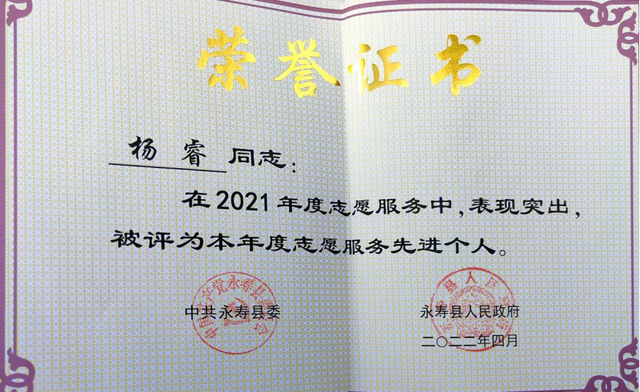 荣誉证书
杨睿同志：
在2021年度志愿服务中，表现突出，
被评为本年度志愿服务先进个人。
中共永寿县委
永寿县人民政府
二〇二二年四月